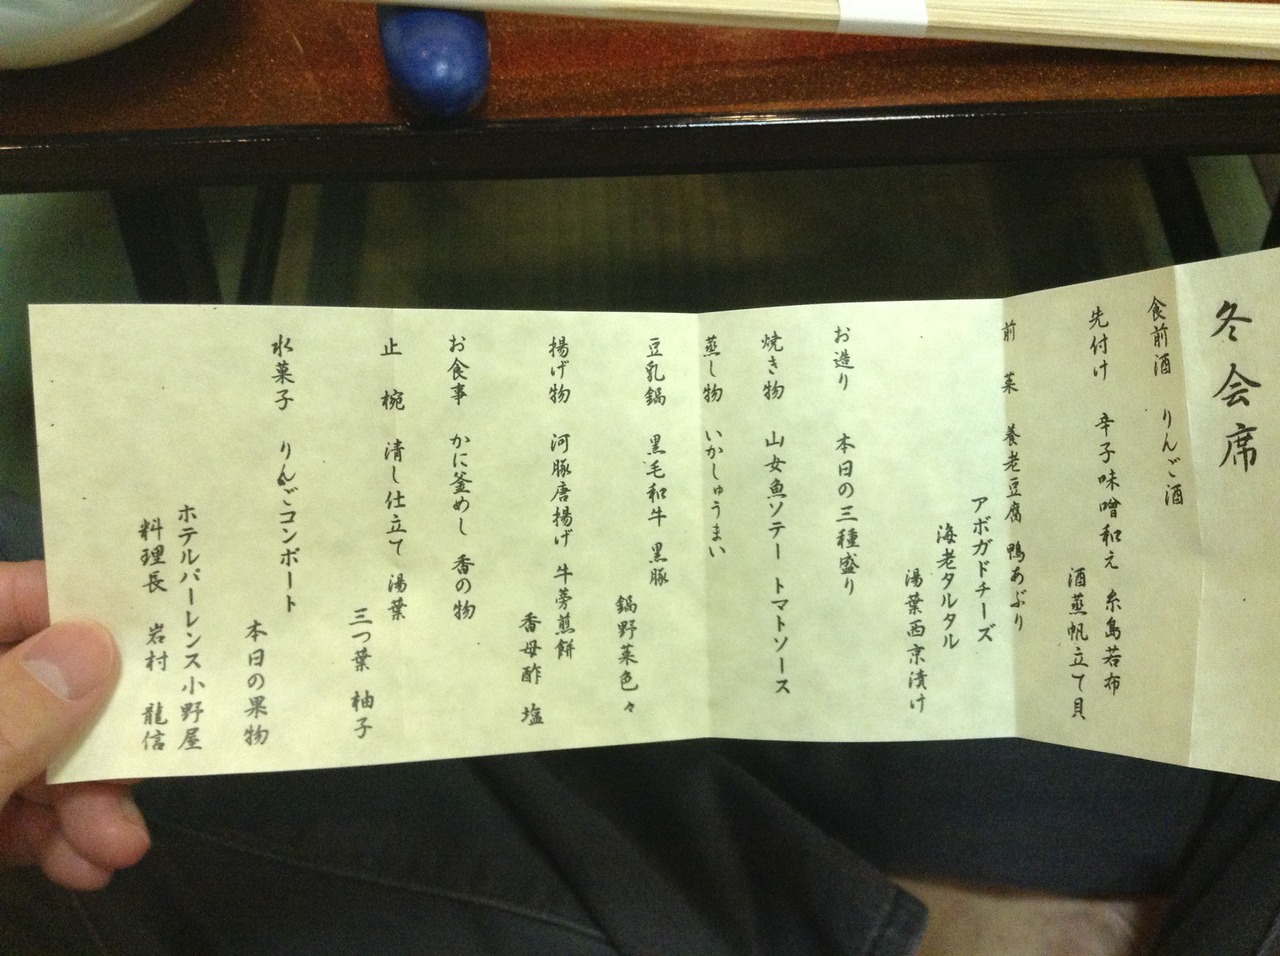 冬会席
食前酒 りんご酒
先付け 辛子味噌和え 糸島若布
酒蒸帆立て貝
前菜 養老豆腐 鴨あぶり
アボガドチーズ
海老タルタル
湯葉西京漬け
お造り 本日の三種盛り
焼き物 山女魚ソテー トマトソース
蒸し物 いかしゅうまい
豆乳鍋 黒毛和牛 黒豚
鍋野菜色々
揚げ物 河豚唐揚げ 牛蒡煎餅
香母酢 塩
お食事 かに釜めし 香の物
止椀 清し仕立て 湯葉
三つ葉 柚子
水菓子 りんごコンポート
本日の果物
ホテルパーレンス小野屋
料理長 岩村 龍信